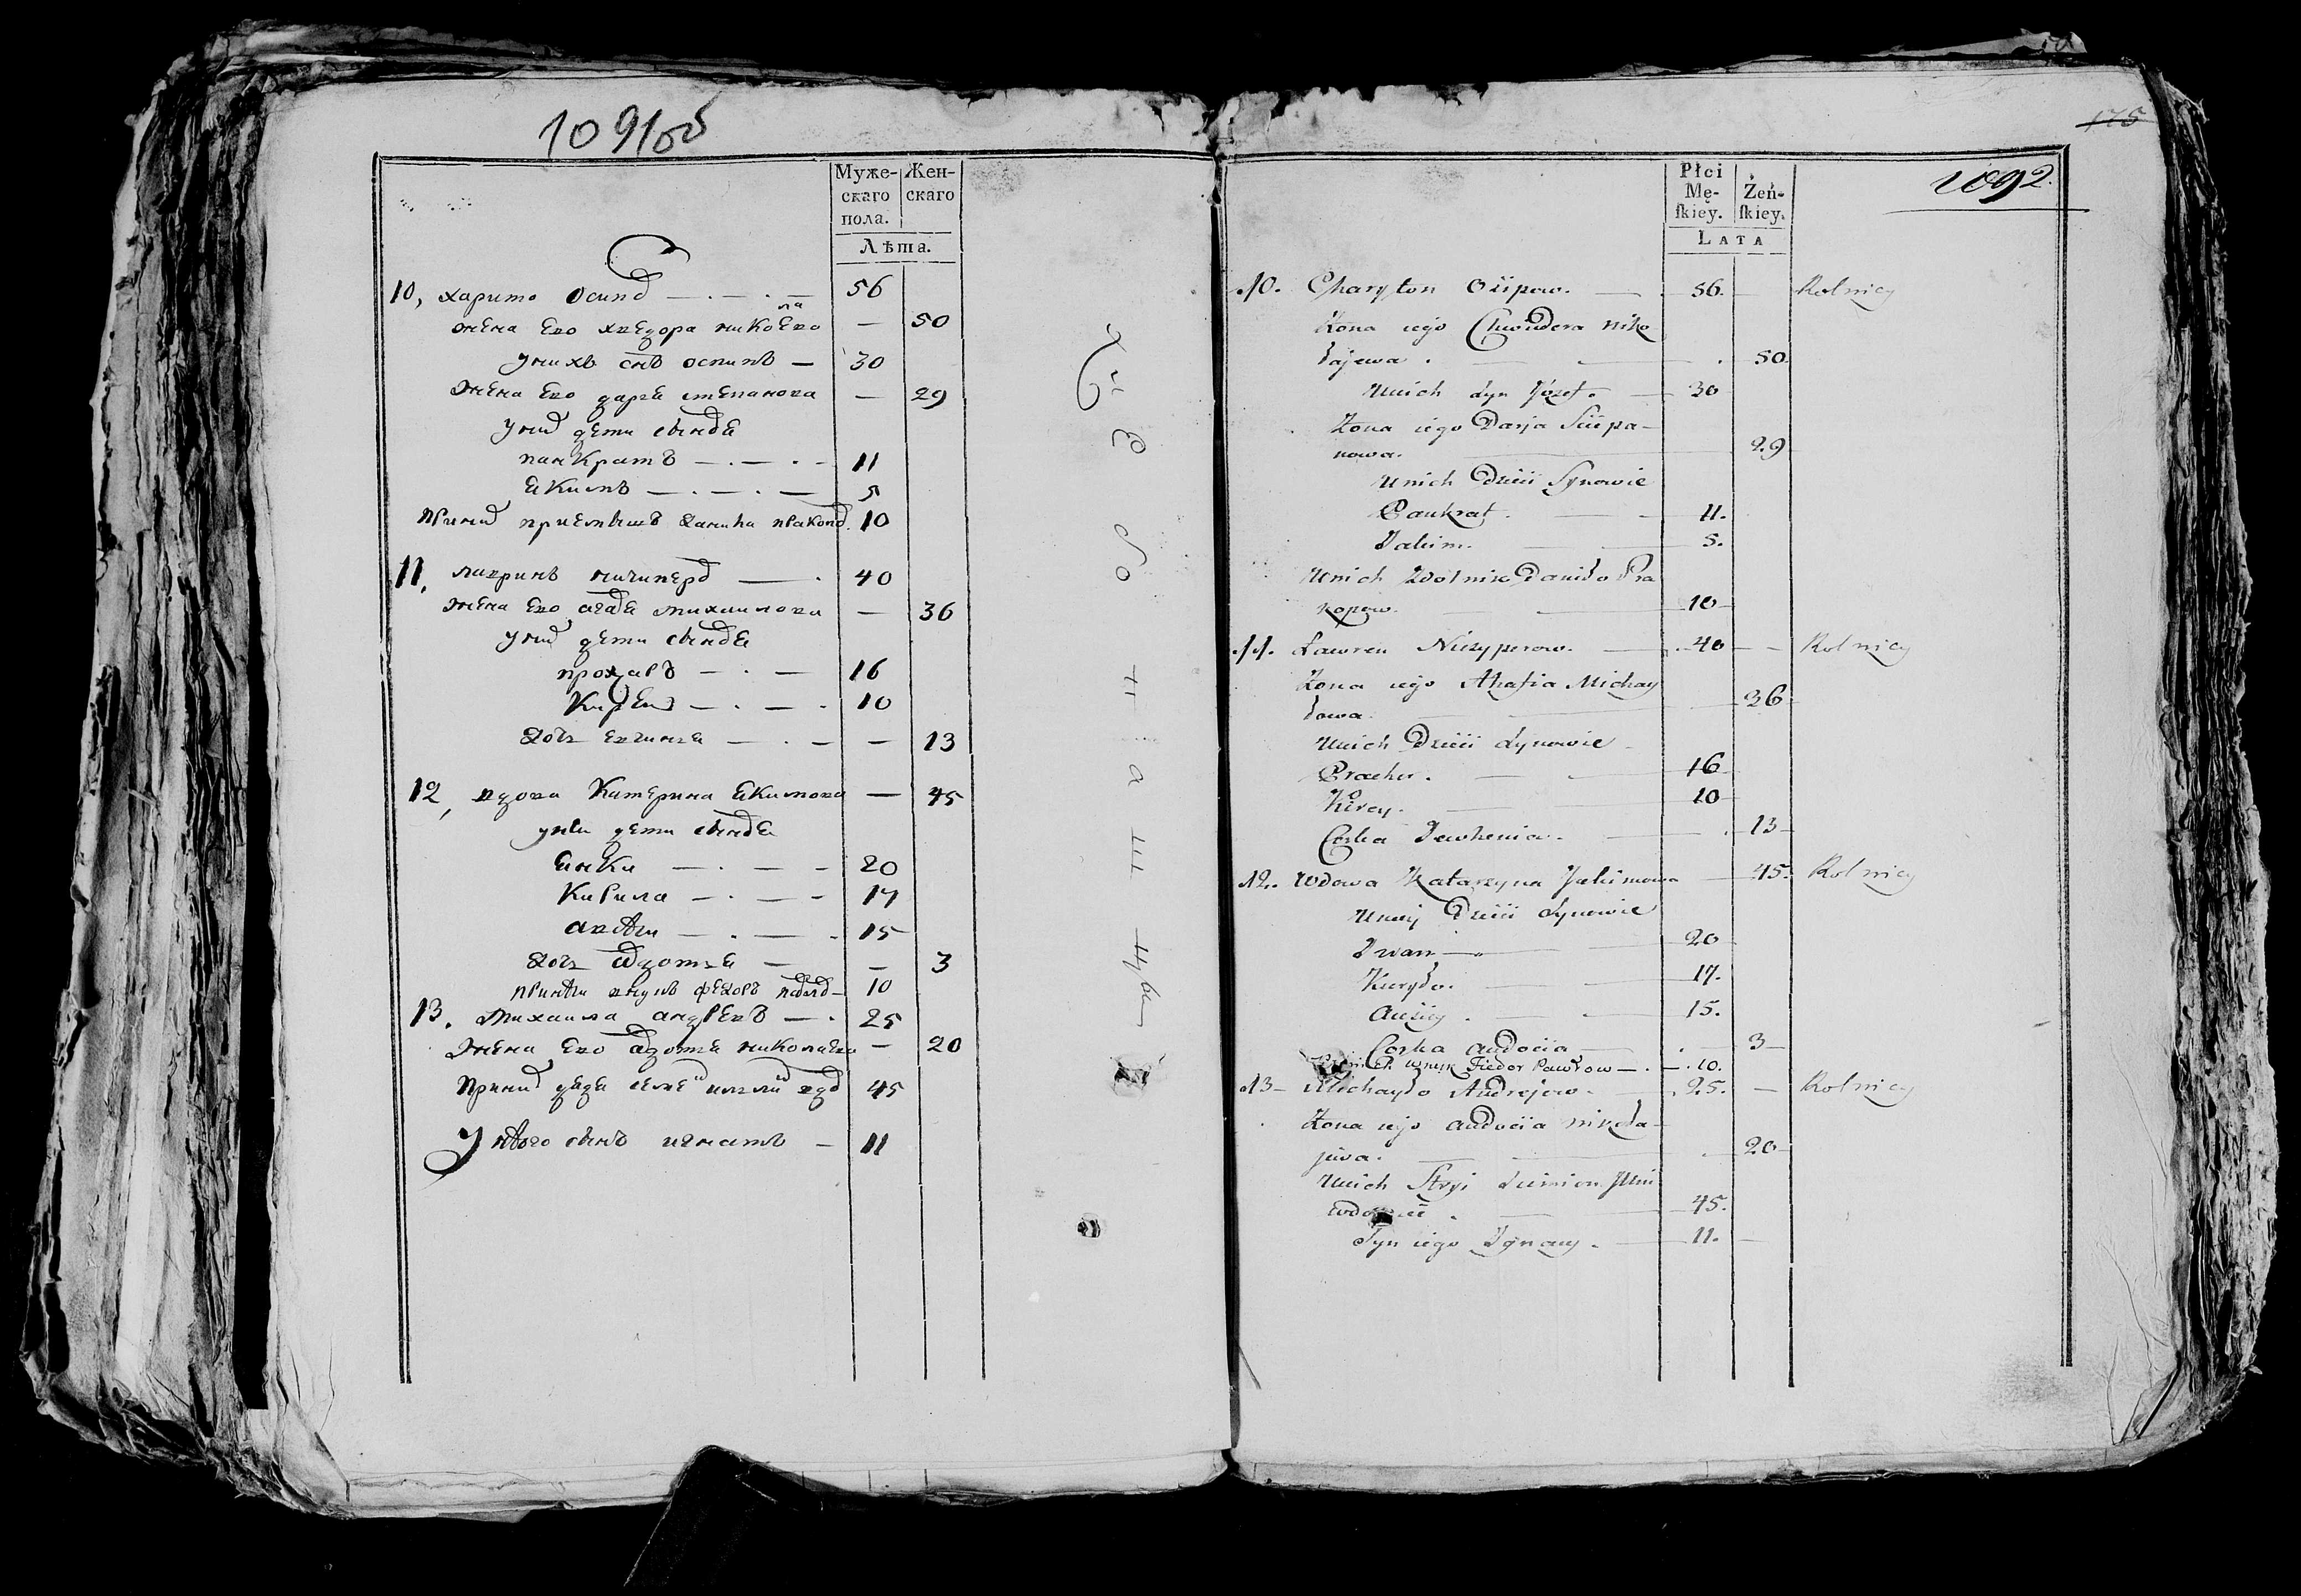 1091об
Муже-
скаго
пола.
Жен-
скаго
Лѣта.
10, харито Осипо — . — . — 56
жена Его хведора никола Ево — 50
У нихъ снъ осипъ — 30
Жена Ево даря степанова — 29
У них дети сыновя
панкратъ — . — . — 11
Екимъ — . — . — 5
При них приемышъ данила пракопо. 10
11, лавринъ ничипоро — . 40
жена Ево агафя михаилова — 36
У них дети сыновя
прохаръ — . — 16
Кирей — . — . 10
дочь евгиня — . — — 13
12, вдова Катерина Екимова — 45
у неи дети сыновя
янка — . — — 20
Кирила — . — — 17
авсѣи — . — . 15
дочь авдотя — — 3
При неи внукъ федоръ павло — 10
13. Михаила андреевъ — . 25
Жена Ево авдотя николаева — 20
При них дядя семен вдов 45
У нѣого сынъ игнатъ — 11
175
1092.
Płci
Mę-
ſkiey.
Żeń-
ſkiey.
LATA
10. Charyton Osipow. — 56. — Rolnicy
Żona iego Chwiedora Niko
łajewa . — . 50.
U nich syn Józef. — 30
Żona iego Darja Sciepa-
nowa. — 29
U nich Dzieci Synowie
Pankrat. — 11.
Jakim. — 5.
U nich Daniło Pra
kopow. — 10
11. Lawren Niczyperow. — 40 — Rolnicy
Żona iego Ahafia Michay
łowa. — 36
U nich Dzieci Synowie
Prachor. — 16
Kirey. — 10
Corka Jewhenia. — 13
12. Wdowa Katarzyna Jakimowa — 45. Rolnicy
U niey Dzieci Synowie
Iwan — 20
Kuryło. — 17.
Auziey . — 15.
Corka Audocia — . 3
wnuk Fiedor Pawłow — . — . 10.
13 — Michayło Andrejow. — 25. — Rolnicy
Żona iego Audocia Nikoła-
jewa. — 20
U nich Stryi Siemion
45.
Syn iego Ignacy. — 11. —